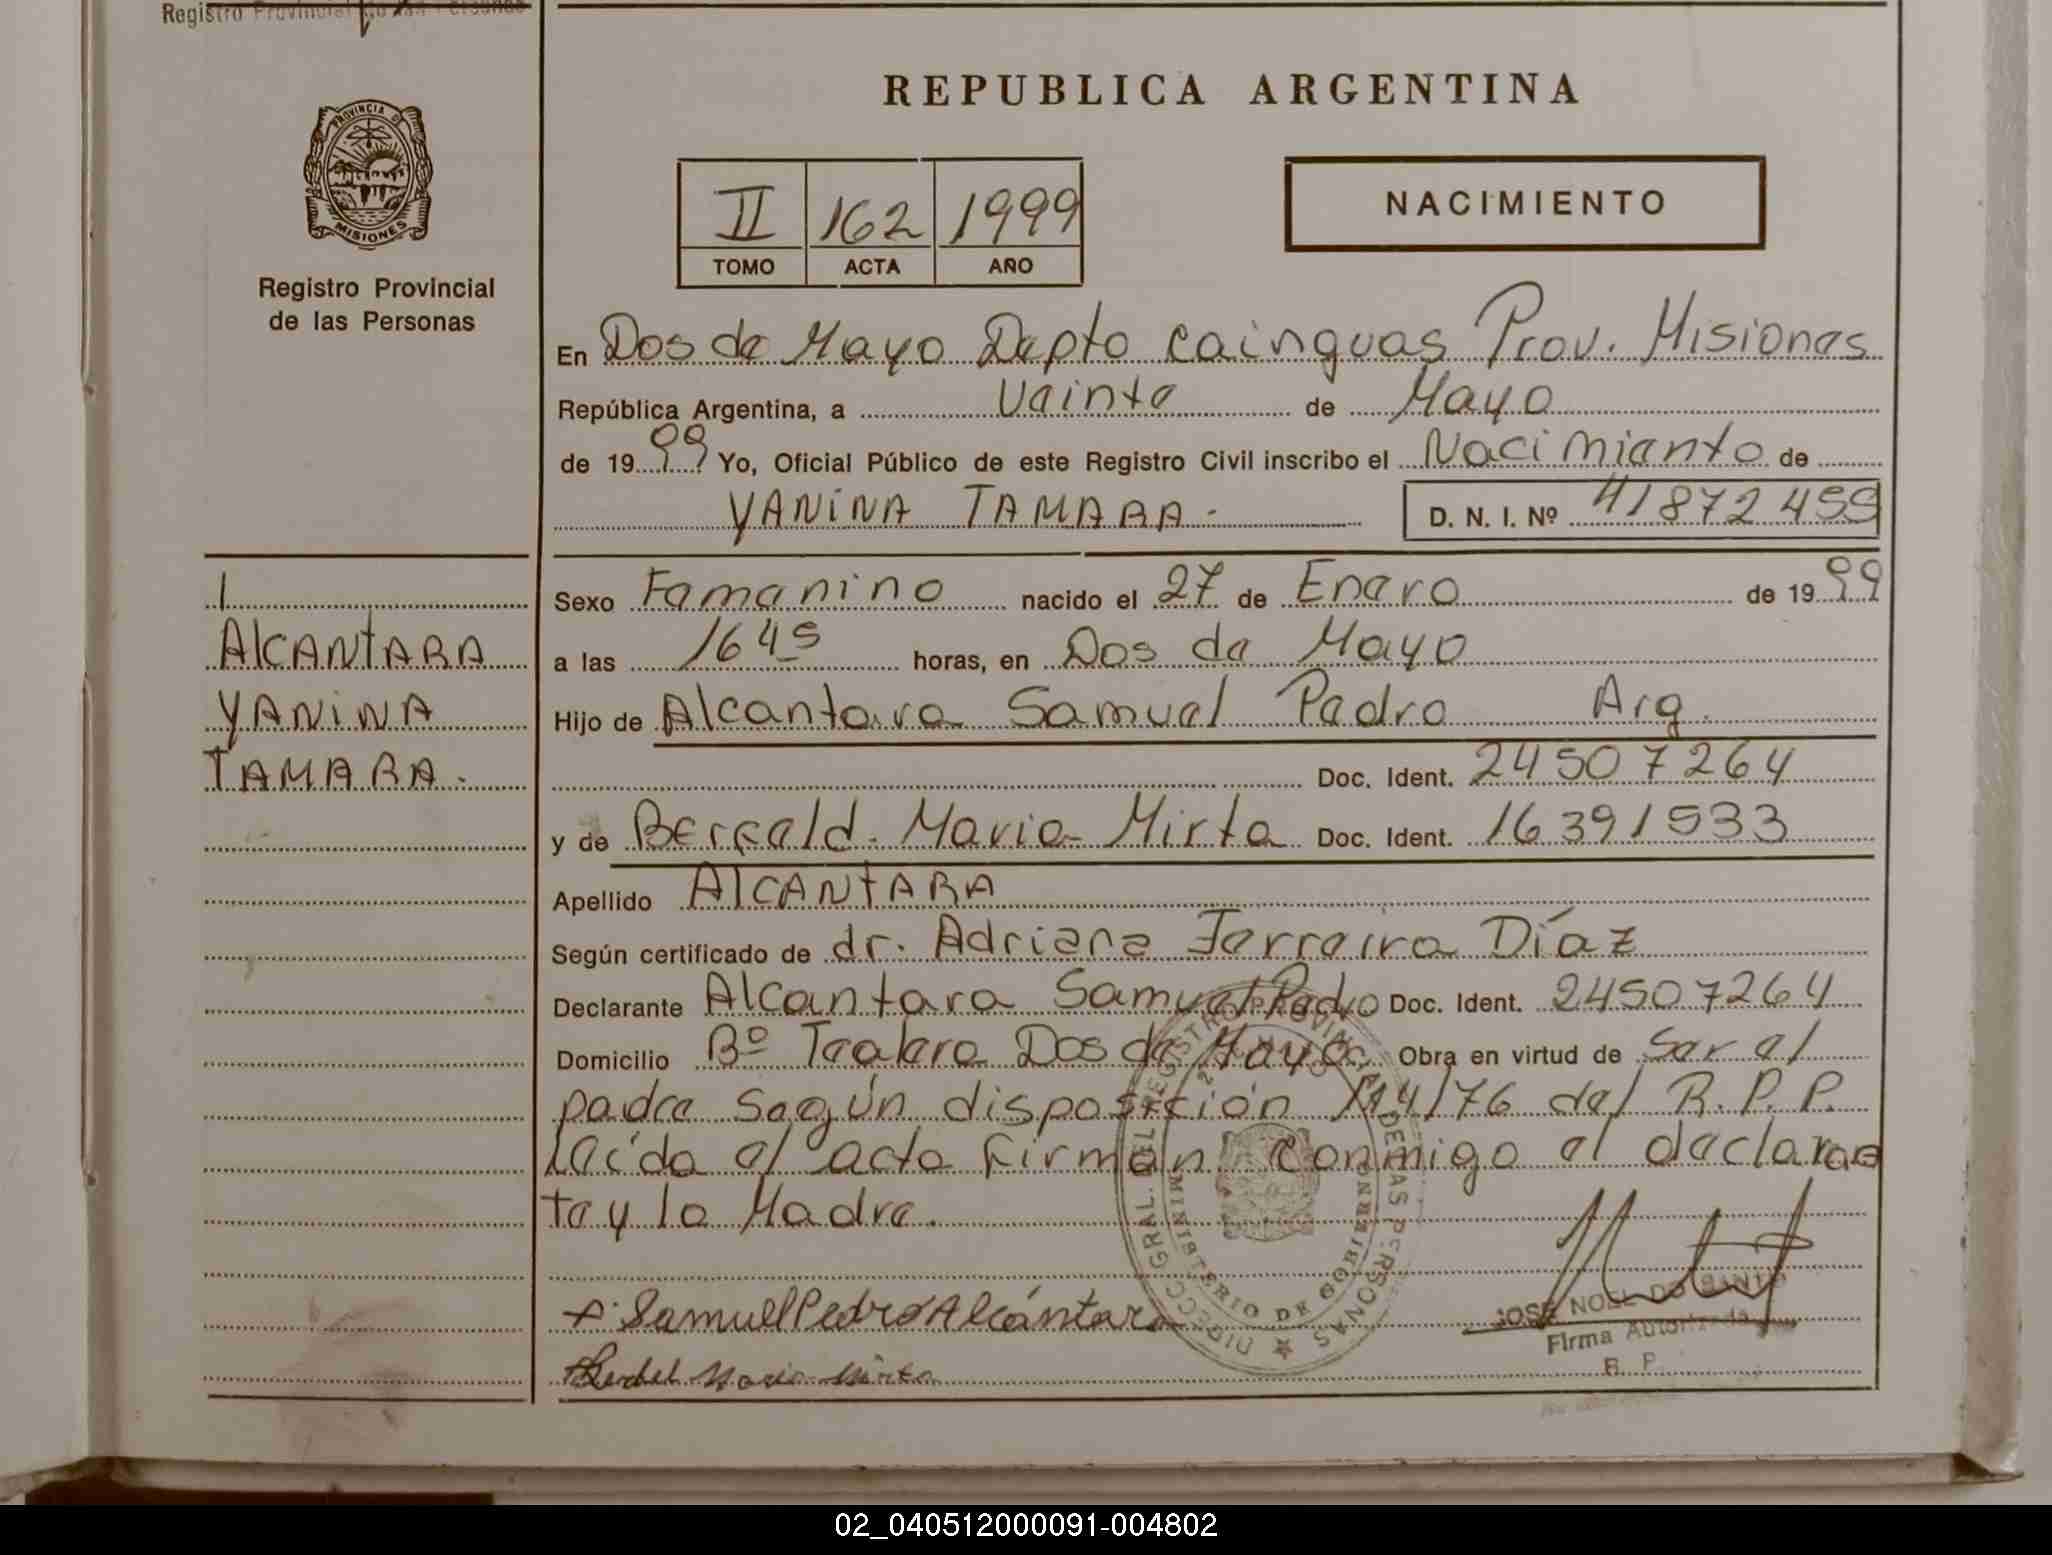 Registro Provincial de las Personas
REPUBLICA ARGENTINA
PROVINCIA DE
MISIONES
Registro Provincial
de las Personas
II 162 1999
TOMO ACTA AÑO
NACIMIENTO
En Dos de Mayo Depto Cainguas Prov. Misiones
República Argentina, a Veinte de Mayo
de 1999 Yo, Oficial Público de este Registro Civil inscribo el Nacimiento de
YANINA TAMARA.- D. N. I. Nº 41872455
1
ALCANTARA
YANINA
TAMARA.
Sexo Femenino nacido el 27 de Enero de 1999
a las 1645 horas, en Dos de Mayo
Hijo de Alcantara Samuel Pedro Arg.
Doc. Ident. 24507264
y de Maria Mirta Doc. Ident. 16391533
Apellido ALCANTARA
Según certificado de dr. Adriana Ferreira Díaz
Declarante Alcantara Samuel Pedro Doc. Ident. 24507264
Domicilio Bº Tealero Dos de Mayo Obra en virtud de Ser el
padre Según disposición 114/76 del R.P.P.
Leída el acta firman conmigo el declaran
te y la Madre.
DIRECC. GRAL. DEL REGISTRO PROVINCIAL DE LAS PERSONAS
MINISTERIO DE GOBIERNO
Samuel Pedro Alcántara
Maria Mirta
JOSE NOEL DO SANTO
Firma Autorizada
R. P.
02_040512000091-004802